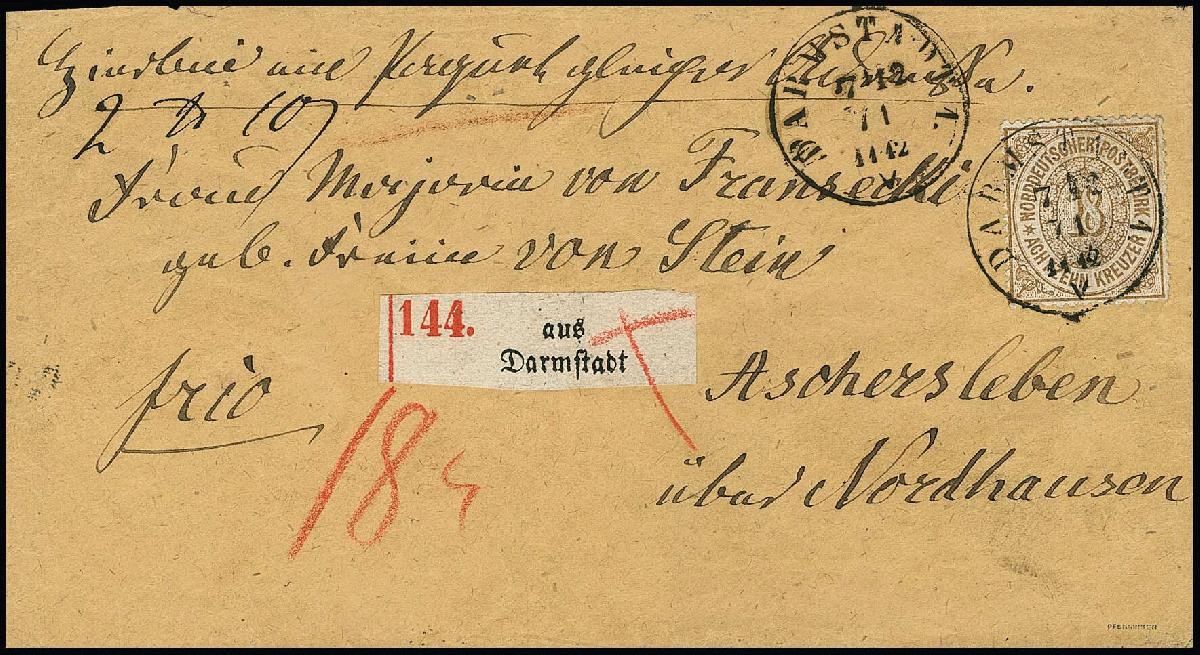 Hierbei ein Paquet gleicher Adresse.
2 ℔ 10
Frau Majorin von Fransecki
geb. Freiin von Stein
144. aus
Darmstadt
frco
18
Aschersleben
über Nordhausen
DARMSTADT 1.
7 12
71
11-12
V
NORDDEUTSCHER POSTBEZIRK
18
ACHTZEHN KREUZER
DARMSTADT 1
7 12
71
11-12
V